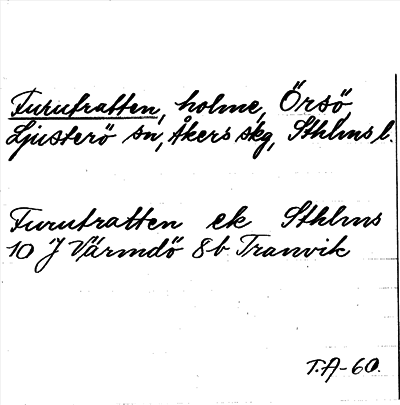 Furufratten, holme, Örsö
Ljusterö sn, Åkers skg, Sthlms l.
Furutratten ek Sthlms
10 J Värmdö 8b Tranvik
T.A-60.